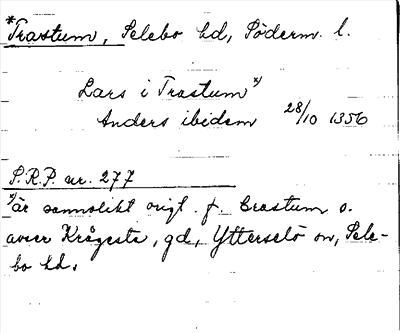 *Trastum, Selebo hd, Söderm. l.
Lars i Trastum x)
Anders ibidem 28/10 1356
S.R.P. nr. 277
x) är sannolikt origl. f. Crastum o.
avser Krågesta, gd, Ytterselö sn, Sele-
bo hd.